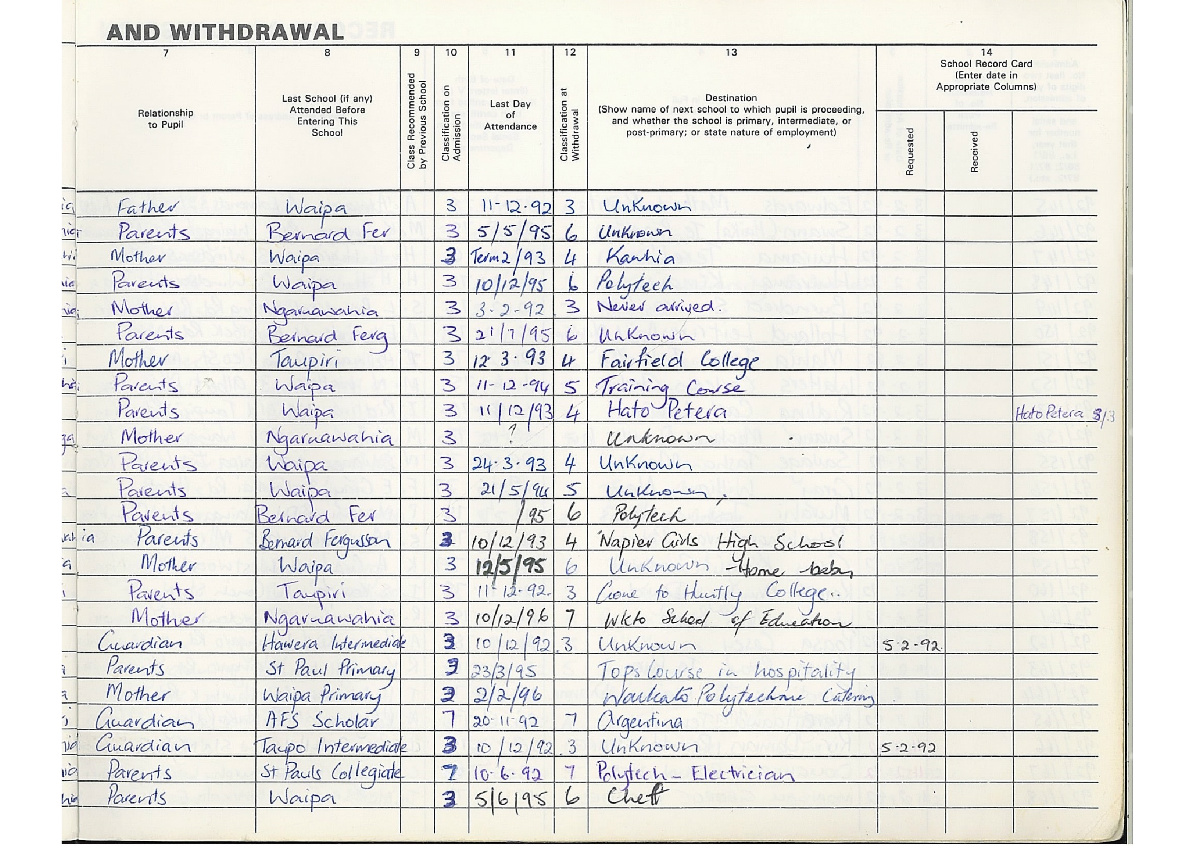 AND WITHDRAWAL
7 8 9 10 11 12 13 14
Relationship to Pupil
Last School (if any) Attended Before Entering This School
Class Recommended by Previous School
Classification on Admission
Last Day of Attendance
Classification at Withdrawal
Destination
(Show name of next school to which pupil is proceeding, and whether the school is primary, intermediate, or post-primary; or state nature of employment)
School Record Card
(Enter date in Appropriate Columns)
Requested
Received
Father Waipa 3 11-12-92 3 Unknown
Parents Bernard Fer 3 5/5/95 6 Unknown
Mother Waipa 3 Term 2/93 4 Kanhia
Parents Waipa 3 10/12/95 6 Polytech
Mother Ngaruawahia 3 3-2-92 3 Never arrived.
Parents Bernard Ferg 3 21/7/95 6 Unknown
Mother Taupiri 3 12 3-93 4 Fairfield College
Parents Waipa 3 11-12-94 5 Training Course
Parents Waipa 3 11/12/93 4 Hato Petera Hato Petera
Mother Ngaruawahia 3 ? Unknown
Parents Waipa 3 24-3-93 4 Unknown
Parents Waipa 3 21/5/94 5 Unknown
Parents Bernard Fer 3 /95 6 Polytech
Parents Bernard Fergusson 3 10/12/93 4 Napier Girls High School
Mother Waipa 3 12/5/95 6 Unknown -Home baby
Parents Taupiri 3 11-12-92. 3 Gone to Huntly College..
Mother Ngaruawahia 3 10/12/96 7 Wkto School of Education
Guardian Hawera Intermediate 3 10/12/92 3 Unknown 5-2-92.
Parents St Paul Primary 3 23/3/95 Tops Course in hospitality
Mother Waipa Primary 3 2/2/96 Waukato Polytechnic Catering
Guardian AFS Scholar 7 20-11-92 7 Argentina
Guardian Taupo Intermediate 3 10/12/92 3 Unknown 5-2-92
Parents St Pauls Collegiate 7 10-6-92 7 Polytech - Electrician
Parents Waipa 3 5/6/95 6 Cheff